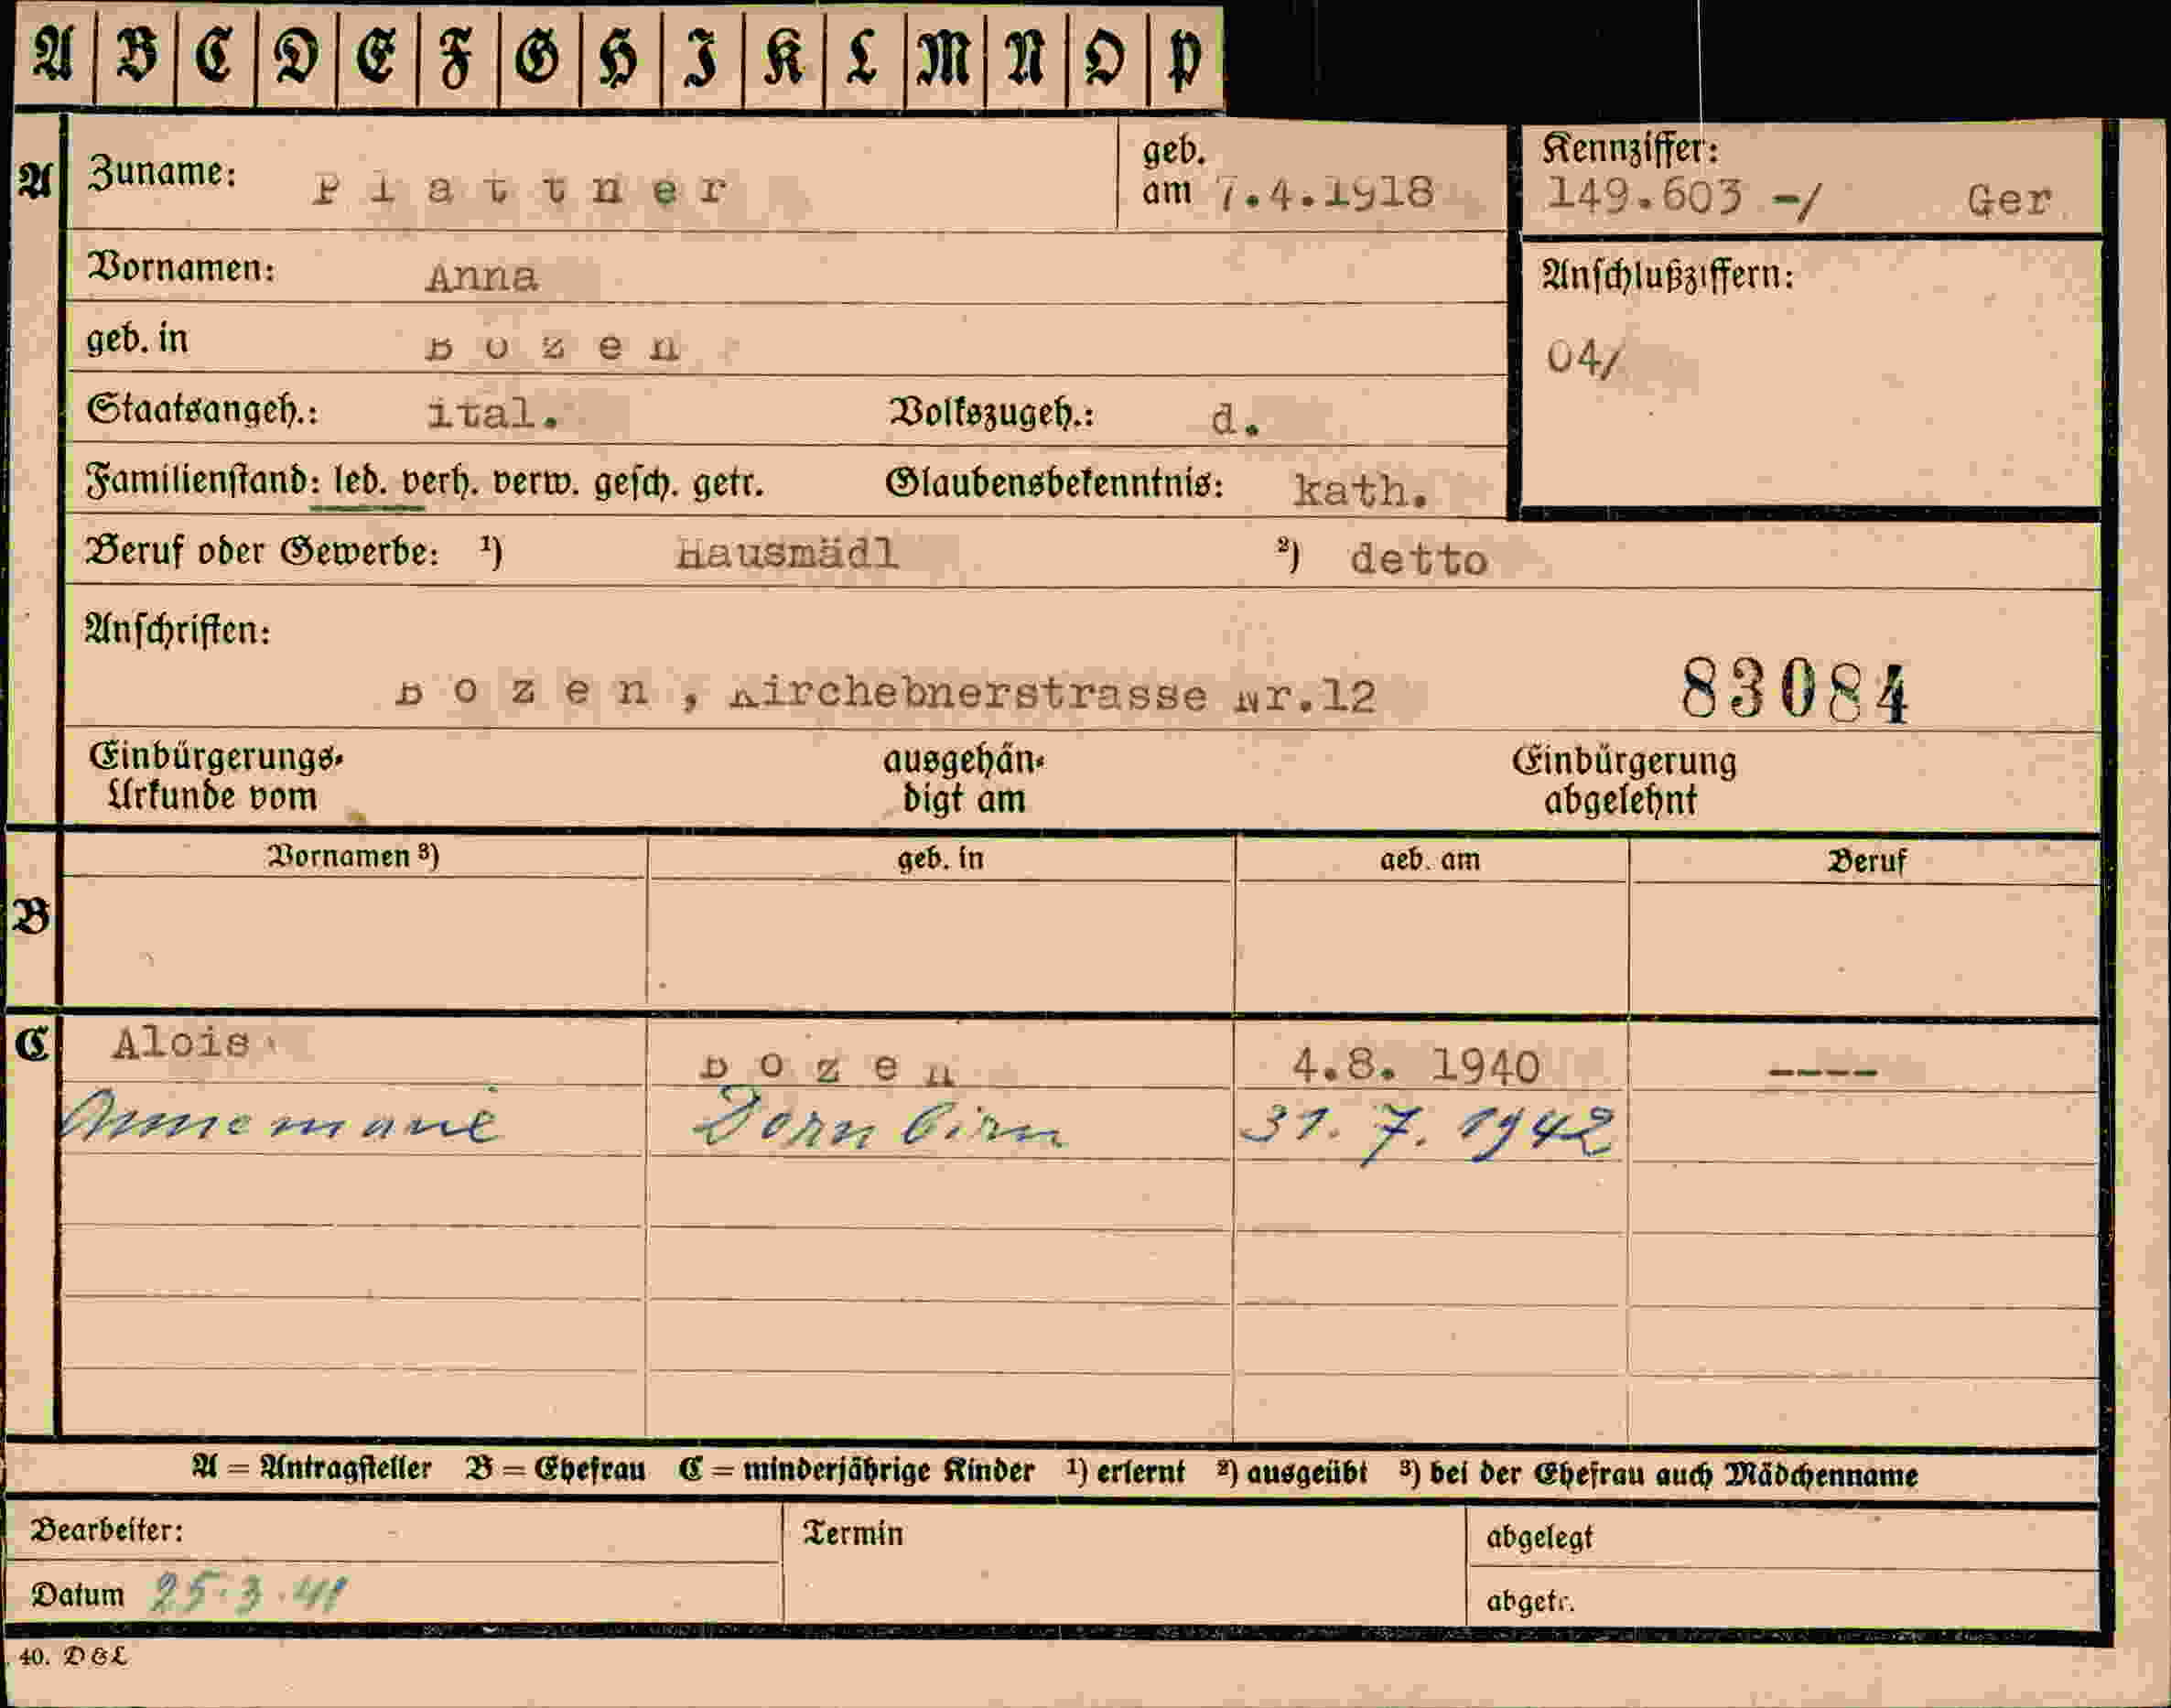 A B C D E F G H I K L M N O P
A Zuname: Plattner geb. am 7.4.1918 Kennziffer: 149.603 -/ Ger
Vornamen: Anna
geb. in Bozen Anschlußziffern: 04/
Staatsangeh.: ital. Volkszugeh.: d.
Familienstand: led. verh. verw. gesch. getr. Glaubensbekenntnis: kath.
Beruf oder Gewerbe: ¹) Hausmädl ²) detto
Anschriften:
Bozen, Kirchebnerstrasse Nr.12 83084
Einbürgerungs-Urkunde vom ausgehändigt am Einbürgerung abgelehnt
Vornamen ³) geb. in geb. am Beruf
B
C Alois Bozen 4.8. 1940 ----
Annemarie Dornbirn 31. 7. 1942
A = Antragsteller B = Ehefrau C = minderjährige Kinder ¹) erlernt ²) ausgeübt ³) bei der Ehefrau auch Mädchenname
Bearbeiter: Termin abgelegt
Datum 25.3.41 abgetr.
40. D&L